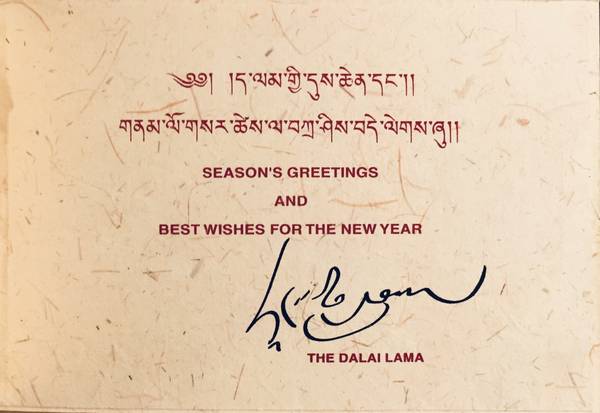 ༄༅། །ད་ལམ་གྱི་དུས་ཆེན་དང་།།
གནམ་ལོ་གསར་ཚེས་ལ་བཀྲ་ཤིས་བདེ་ལེགས་ཞུ།།
SEASON'S GREETINGS
AND
BEST WISHES FOR THE NEW YEAR
THE DALAI LAMA